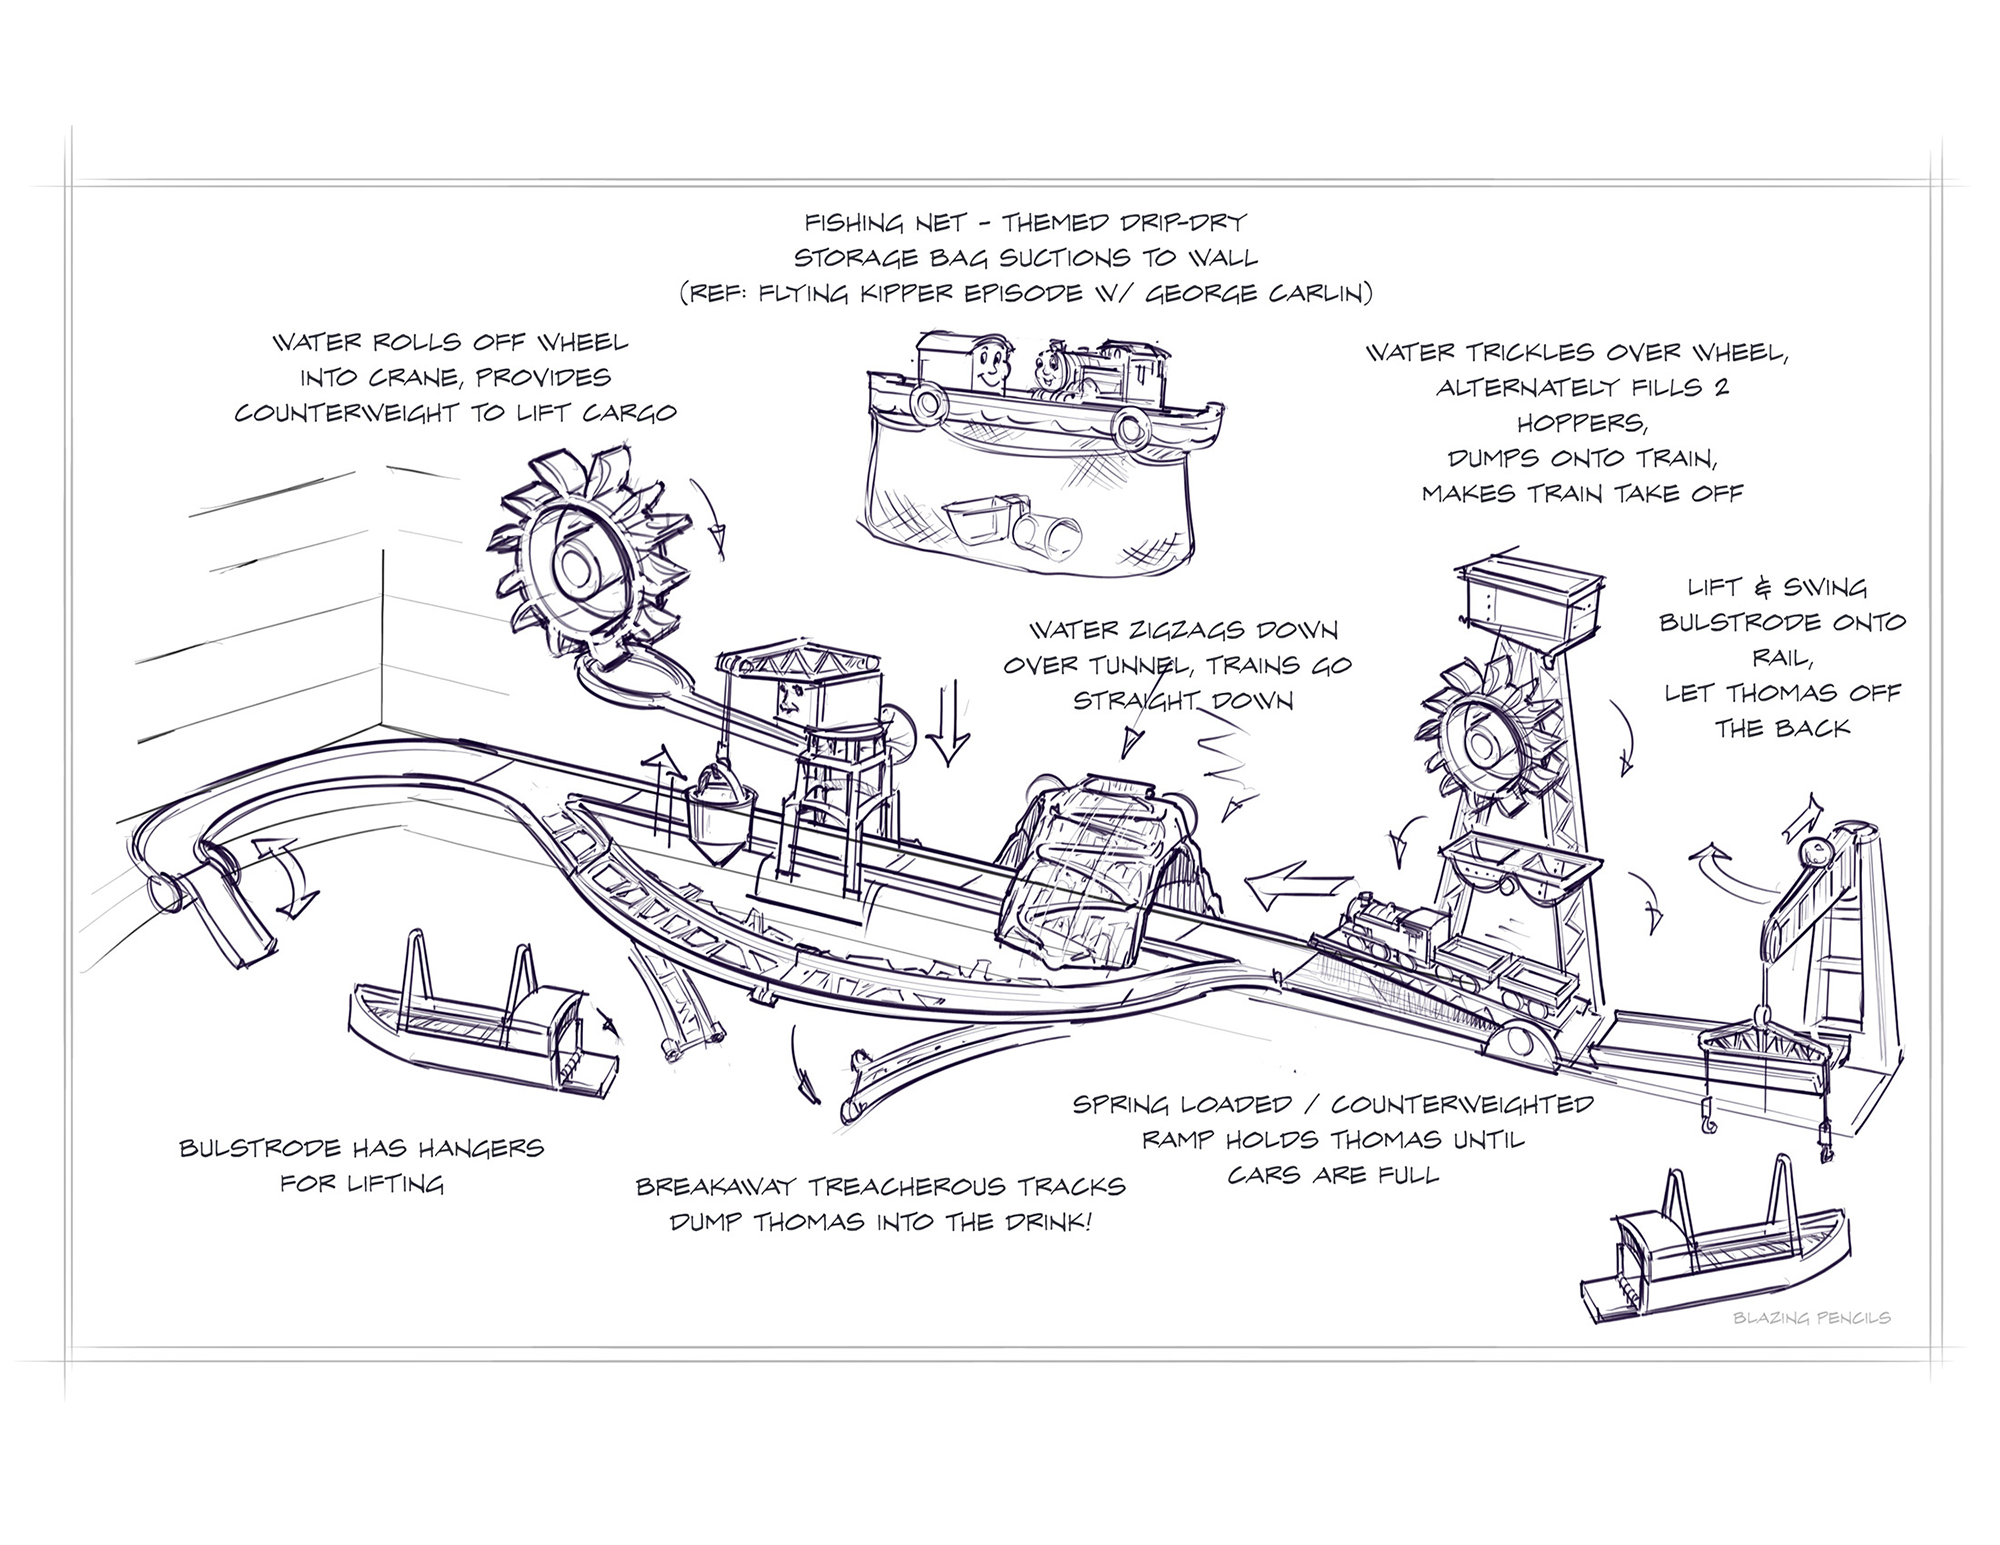 FISHING NET - THEMED DRIP-DRY
STORAGE BAG SUCTIONS TO WALL
(REF: FLYING KIPPER EPISODE W/ GEORGE CARLIN)
WATER ROLLS OFF WHEEL
INTO CRANE, PROVIDES
COUNTERWEIGHT TO LIFT CARGO
WATER TRICKLES OVER WHEEL,
ALTERNATELY FILLS 2
HOPPERS,
DUMPS ONTO TRAIN,
MAKES TRAIN TAKE OFF
LIFT & SWING
BULSTRODE ONTO
RAIL,
LET THOMAS OFF
THE BACK
WATER ZIGZAGS DOWN
OVER TUNNEL, TRAINS GO
STRAIGHT DOWN
SPRING LOADED / COUNTERWEIGHTED
RAMP HOLDS THOMAS UNTIL
CARS ARE FULL
BULSTRODE HAS HANGERS
FOR LIFTING
BREAKAWAY TREACHEROUS TRACKS
DUMP THOMAS INTO THE DRINK!
BLAZING PENCILS